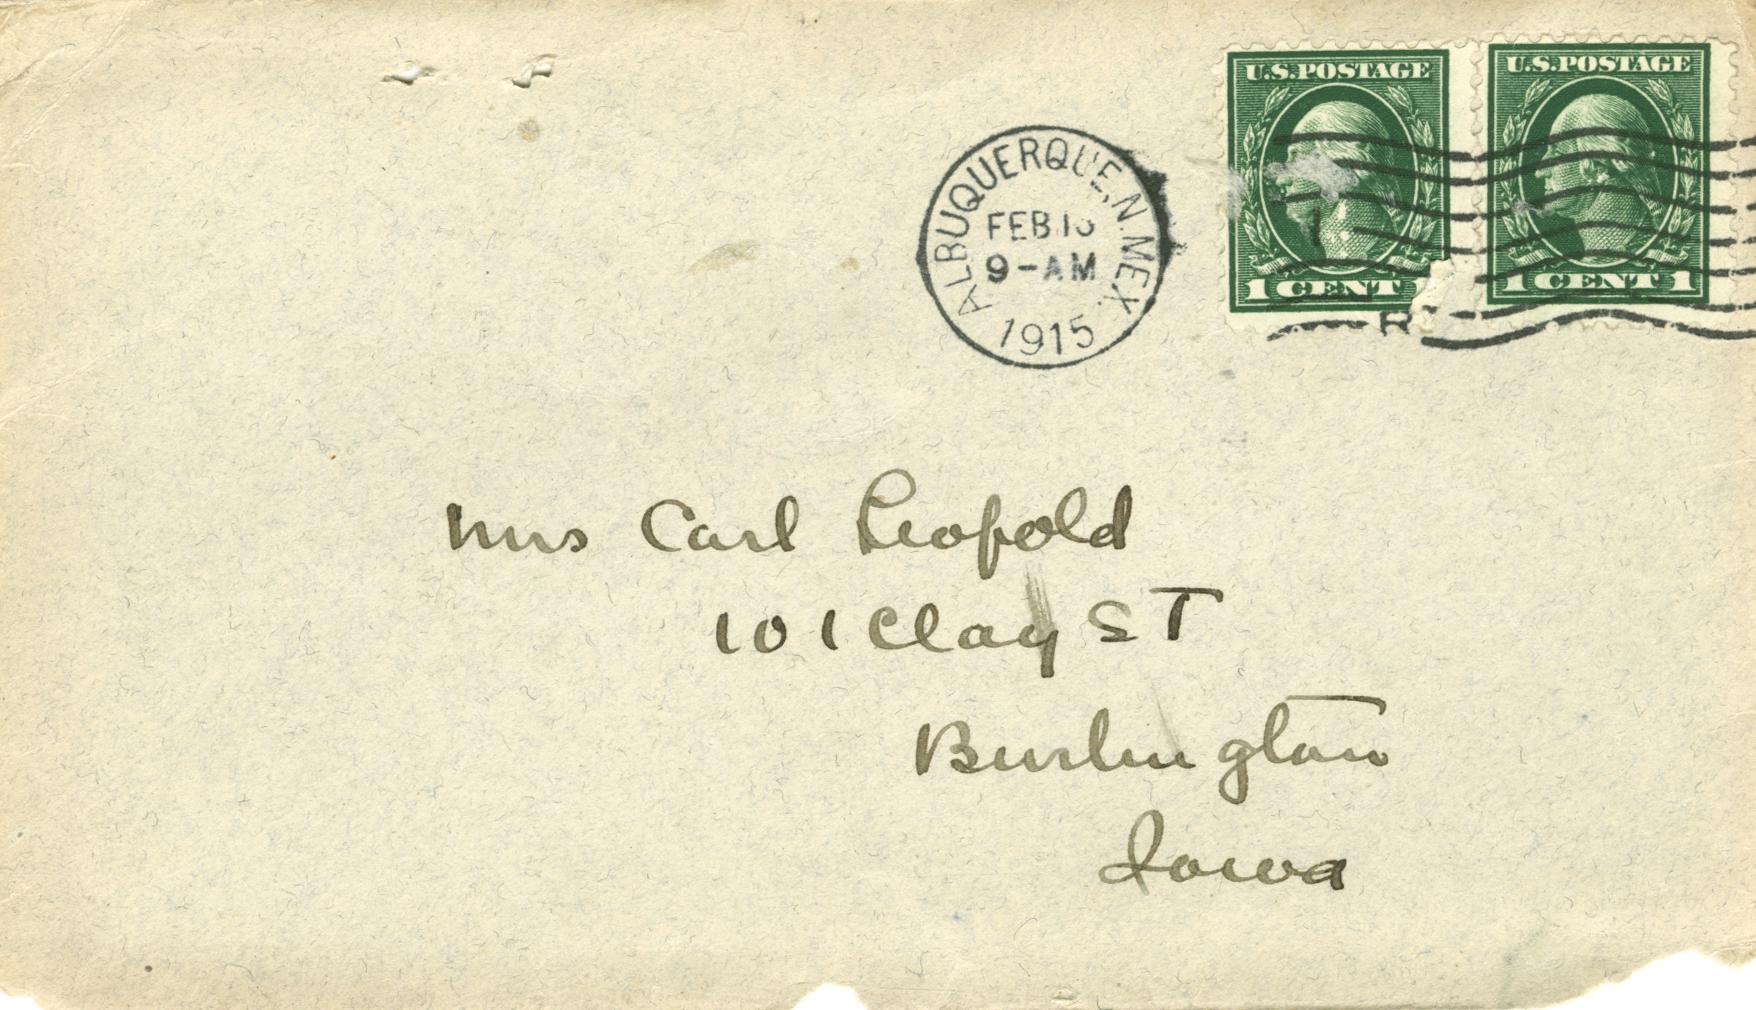 U.S. POSTAGE U.S. POSTAGE
1 CENT 1 CENT 1
ALBUQUERQUE, N. MEX.
FEB
9-AM
1915
Mrs Carl Leopold
101 Clay ST
Burlington
Iowa